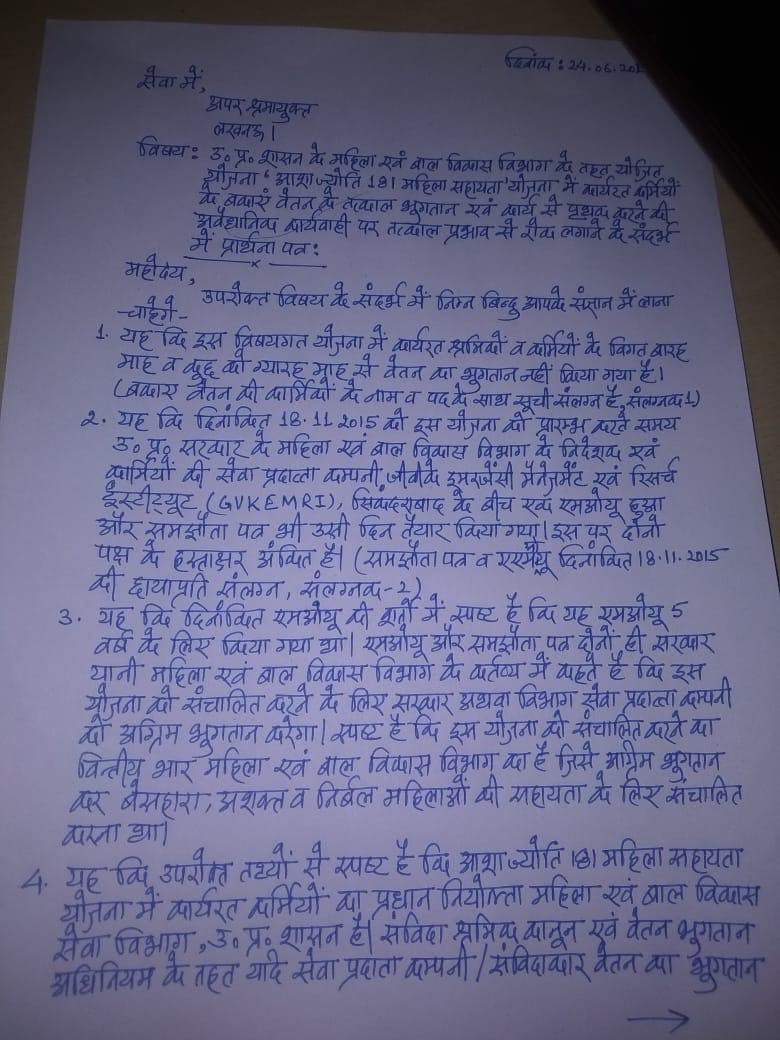 दिनांक : 24.06.202
सेवा में,
अपर श्रमायुक्त
लखनऊ।
विषय: उ. प्र. शासन के महिला एवं बाल विकास विभाग के तहत योजित
योजना 'आशा ज्योति 181 महिला सहायता योजना में कार्यरत कर्मियों
के बकाए वेतन के तत्काल भुगतान एवं कार्य से पृथक करने की
अवैधानिक कार्यवाही पर तत्काल प्रभाव से रोक लगाने के संदर्भ
में प्रार्थना पत्र:
महोदय,
उपरोक्त विषय के संदर्भ में निम्न बिन्दु आपके संज्ञान में लाना
चाहेंगे-
1. यह कि इस विषयगत योजना में कार्यरत श्रमिकों व कर्मियों के विगत बारह
माह व कुछ को ग्यारह माह से वेतन का भुगतान नहीं किया गया है।
(बकाए वेतन की कार्मिकों के नाम व पद के साथ सूची संलग्न है, संलग्नक 1)
2. यह कि दिनांकित 18.11.2015 को इस योजना को प्रारम्भ करते समय
उ. प्र. सरकार के महिला एवं बाल विकास विभाग के निदेशक एवं
कार्मियों की सेवा प्रदात्ता कम्पनी जीवीके इमरजेंसी मैनेजमेंट एवं रिसर्च
इंस्टीट्यूट (GVKEMRI), सिकंदराबाद के बीच एक एमओयू हुआ
और समझौता पत्र भी उसी दिन तैयार किया गया। इस पर दोनों
पक्ष के हस्ताक्षर अंकित है। (समझौता पत्र व दिनांकित 18.11.2015
की छायाप्रति संलग्न, संलग्नक-2)
3. यह कि दिनांकित एमओयू की शर्तों में स्पष्ट है कि यह एमओयू 5
वर्ष के लिए किया गया था। एमओयू और समझौता पत्र दोनों ही सरकार
यानी महिला एवं बाल विकास विभाग के कर्तव्य में कहते है कि इस
योजना को संचालित करने के लिए सरकार अथवा विभाग सेवा प्रदात्ता कम्पनी
को अग्रिम भुगतान करेगा। स्पष्ट है कि इस योजना को संचालित करने का
वित्तीय भार महिला एवं बाल विकास विभाग का है जिसे अग्रिम भुगतान
कर बेसहारा, अशक्त व निर्बल महिलाओं की सहायता के लिए संचालित
करना था।
4. यह कि उपरोक्त तथ्यों से स्पष्ट है कि आशा ज्योति 181 महिला सहायता
योजना में कार्यरत कर्मियों का प्रधान नियोक्ता महिला एवं बाल विकास
सेवा विभाग, उ. प्र. शासन है। संविदा श्रमिक कानून एवं वेतन भुगतान
अधिनियम के तहत यदि सेवा प्रदाता कम्पनी / संविदाकार वेतन का भुगतान